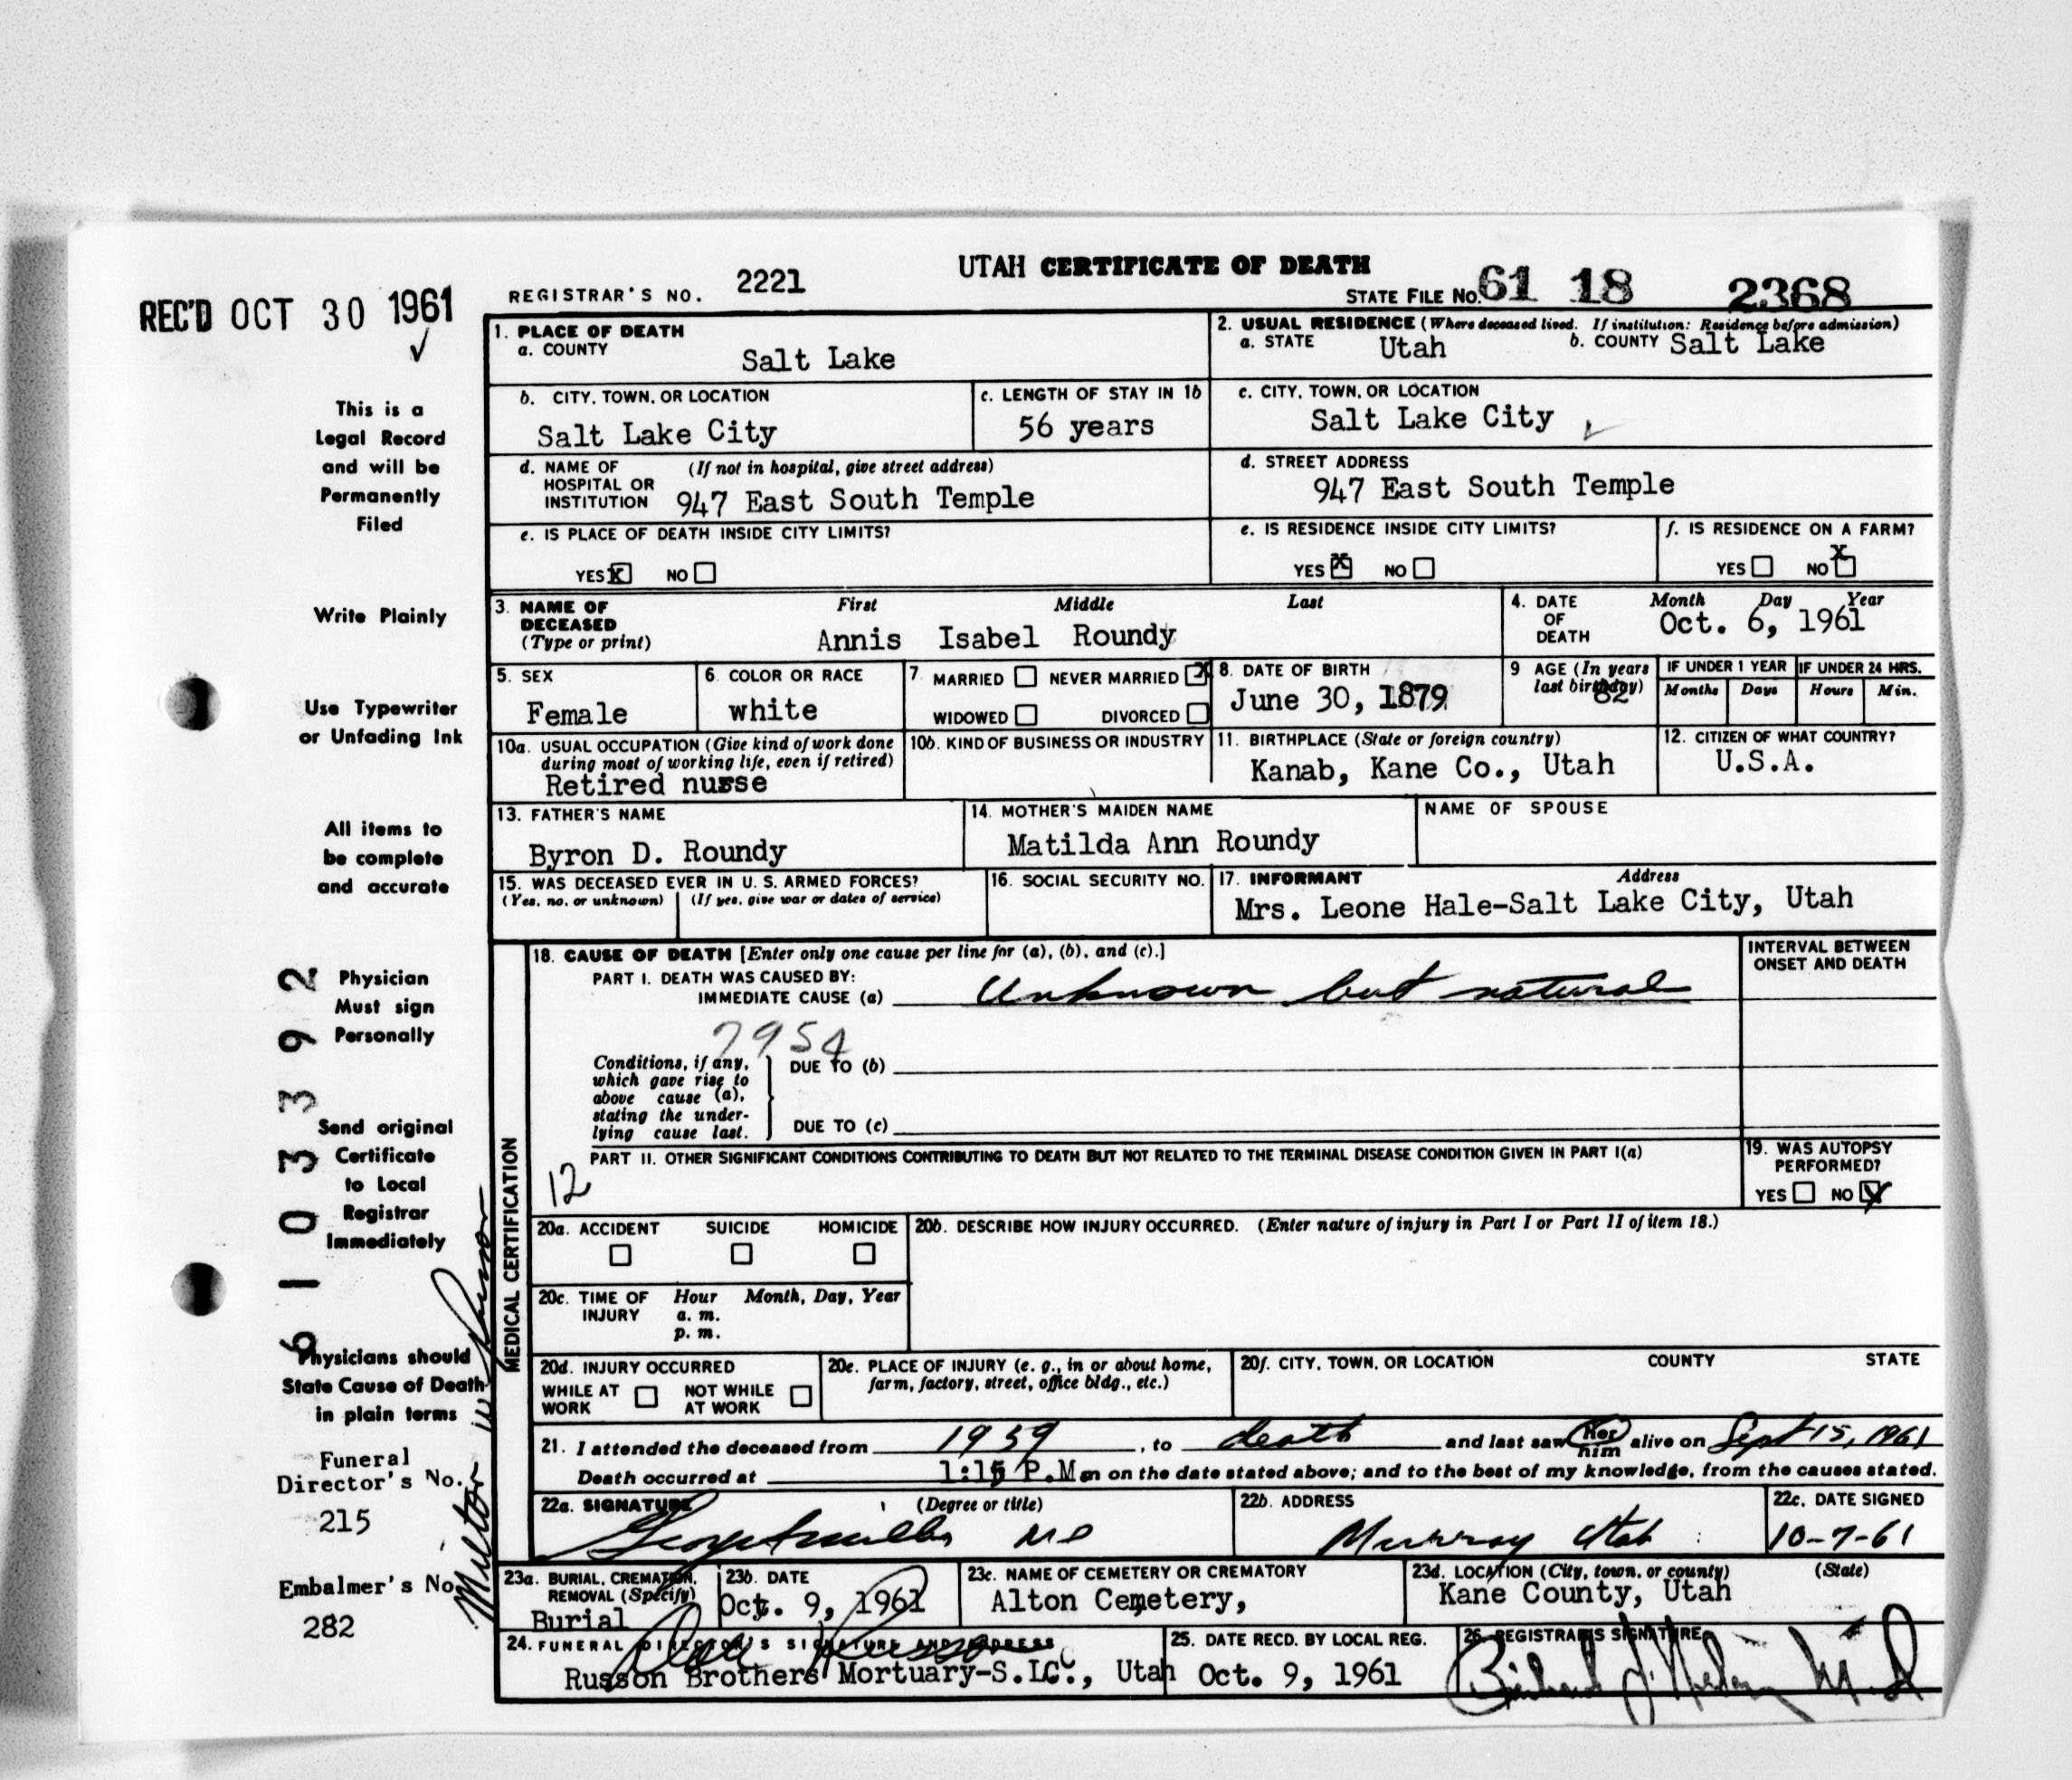 UTAH CERTIFICATE OF DEATH
REC'D OCT 30 1961
REGISTRAR'S NO. 2221
STATE FILE NO. 61 18 2368
This is a
Legal Record
and will be
Permanently
Filed
Write Plainly
Use Typewriter
or Unfading Ink
All items to
be complete
and accurate
Physician
Must sign
Personally
Send original
Certificate
to Local
Registrar
Immediately
Physicians should
State Cause of Death
in plain terms
Funeral
Director's No.
215
Embalmer's No
282
61033392
1. PLACE OF DEATH
a. COUNTY
Salt Lake
2. USUAL RESIDENCE (Where deceased lived. If institution: Residence before admission)
a. STATE Utah b. COUNTY Salt Lake
b. CITY, TOWN, OR LOCATION
Salt Lake City
c. LENGTH OF STAY IN 1b
56 years
c. CITY, TOWN, OR LOCATION
Salt Lake City
d. NAME OF (If not in hospital, give street address)
HOSPITAL OR
INSTITUTION 947 East South Temple
d. STREET ADDRESS
947 East South Temple
e. IS PLACE OF DEATH INSIDE CITY LIMITS?
YES X NO
e. IS RESIDENCE INSIDE CITY LIMITS?
YES X NO
f. IS RESIDENCE ON A FARM?
YES NO X
3. NAME OF DECEASED
(Type or print)
First Middle Last
Annis Isabel Roundy
4. DATE OF DEATH
Month Day Year
Oct. 6, 1961
5. SEX
Female
6. COLOR OR RACE
white
7. MARRIED NEVER MARRIED X
WIDOWED DIVORCED
8. DATE OF BIRTH
June 30, 1879
9 AGE (In years
last birthday)
82
IF UNDER 1 YEAR IF UNDER 24 HRS.
Months Days Hours Min.
10a. USUAL OCCUPATION (Give kind of work done
during most of working life, even if retired)
Retired nurse
10b. KIND OF BUSINESS OR INDUSTRY
11. BIRTHPLACE (State or foreign country)
Kanab, Kane Co., Utah
12. CITIZEN OF WHAT COUNTRY?
U.S.A.
13. FATHER'S NAME
Byron D. Roundy
14. MOTHER'S MAIDEN NAME
Matilda Ann Roundy
NAME OF SPOUSE
15. WAS DECEASED EVER IN U. S. ARMED FORCES?
(Yes, no, or unknown) (If yes, give war or dates of service)
16. SOCIAL SECURITY NO.
17. INFORMANT Address
Mrs. Leone Hale-Salt Lake City, Utah
MEDICAL CERTIFICATION
18. CAUSE OF DEATH [Enter only one cause per line for (a), (b), and (c).]
INTERVAL BETWEEN
ONSET AND DEATH
PART I. DEATH WAS CAUSED BY:
IMMEDIATE CAUSE (a) Unknown but natural
7954
Conditions, if any,
which gave rise to
above cause (a),
stating the under-
lying cause last.
DUE TO (b)
DUE TO (c)
PART II. OTHER SIGNIFICANT CONDITIONS CONTRIBUTING TO DEATH BUT NOT RELATED TO THE TERMINAL DISEASE CONDITION GIVEN IN PART I(a)
12
19. WAS AUTOPSY
PERFORMED?
YES NO X
20a. ACCIDENT SUICIDE HOMICIDE
20b. DESCRIBE HOW INJURY OCCURRED. (Enter nature of injury in Part I or Part II of item 18.)
20c. TIME OF INJURY Hour Month, Day, Year
a. m.
p. m.
20d. INJURY OCCURRED
WHILE AT WORK NOT WHILE AT WORK
20e. PLACE OF INJURY (e. g., in or about home,
farm, factory, street, office bldg., etc.)
20f. CITY, TOWN, OR LOCATION COUNTY STATE
21. I attended the deceased from 1959, to death and last saw her him alive on Sept 15, 1961
Death occurred at 1:15 P.M. m on the date stated above; and to the best of my knowledge, from the causes stated.
22a. SIGNATURE (Degree or title)
MD
22b. ADDRESS
Murray Utah
22c. DATE SIGNED
10-7-61
23a. BURIAL, CREMATION,
REMOVAL (Specify)
Burial
23b. DATE
Oct. 9, 1961
23c. NAME OF CEMETERY OR CREMATORY
Alton Cemetery,
23d. LOCATION (City, town, or county) (State)
Kane County, Utah
24. FUNERAL DIRECTOR'S SIGNATURE AND ADDRESS
Russon Brothers Mortuary-S.LC., Utah
25. DATE RECD. BY LOCAL REG.
Oct. 9, 1961
26. REGISTRAR'S SIGNATURE